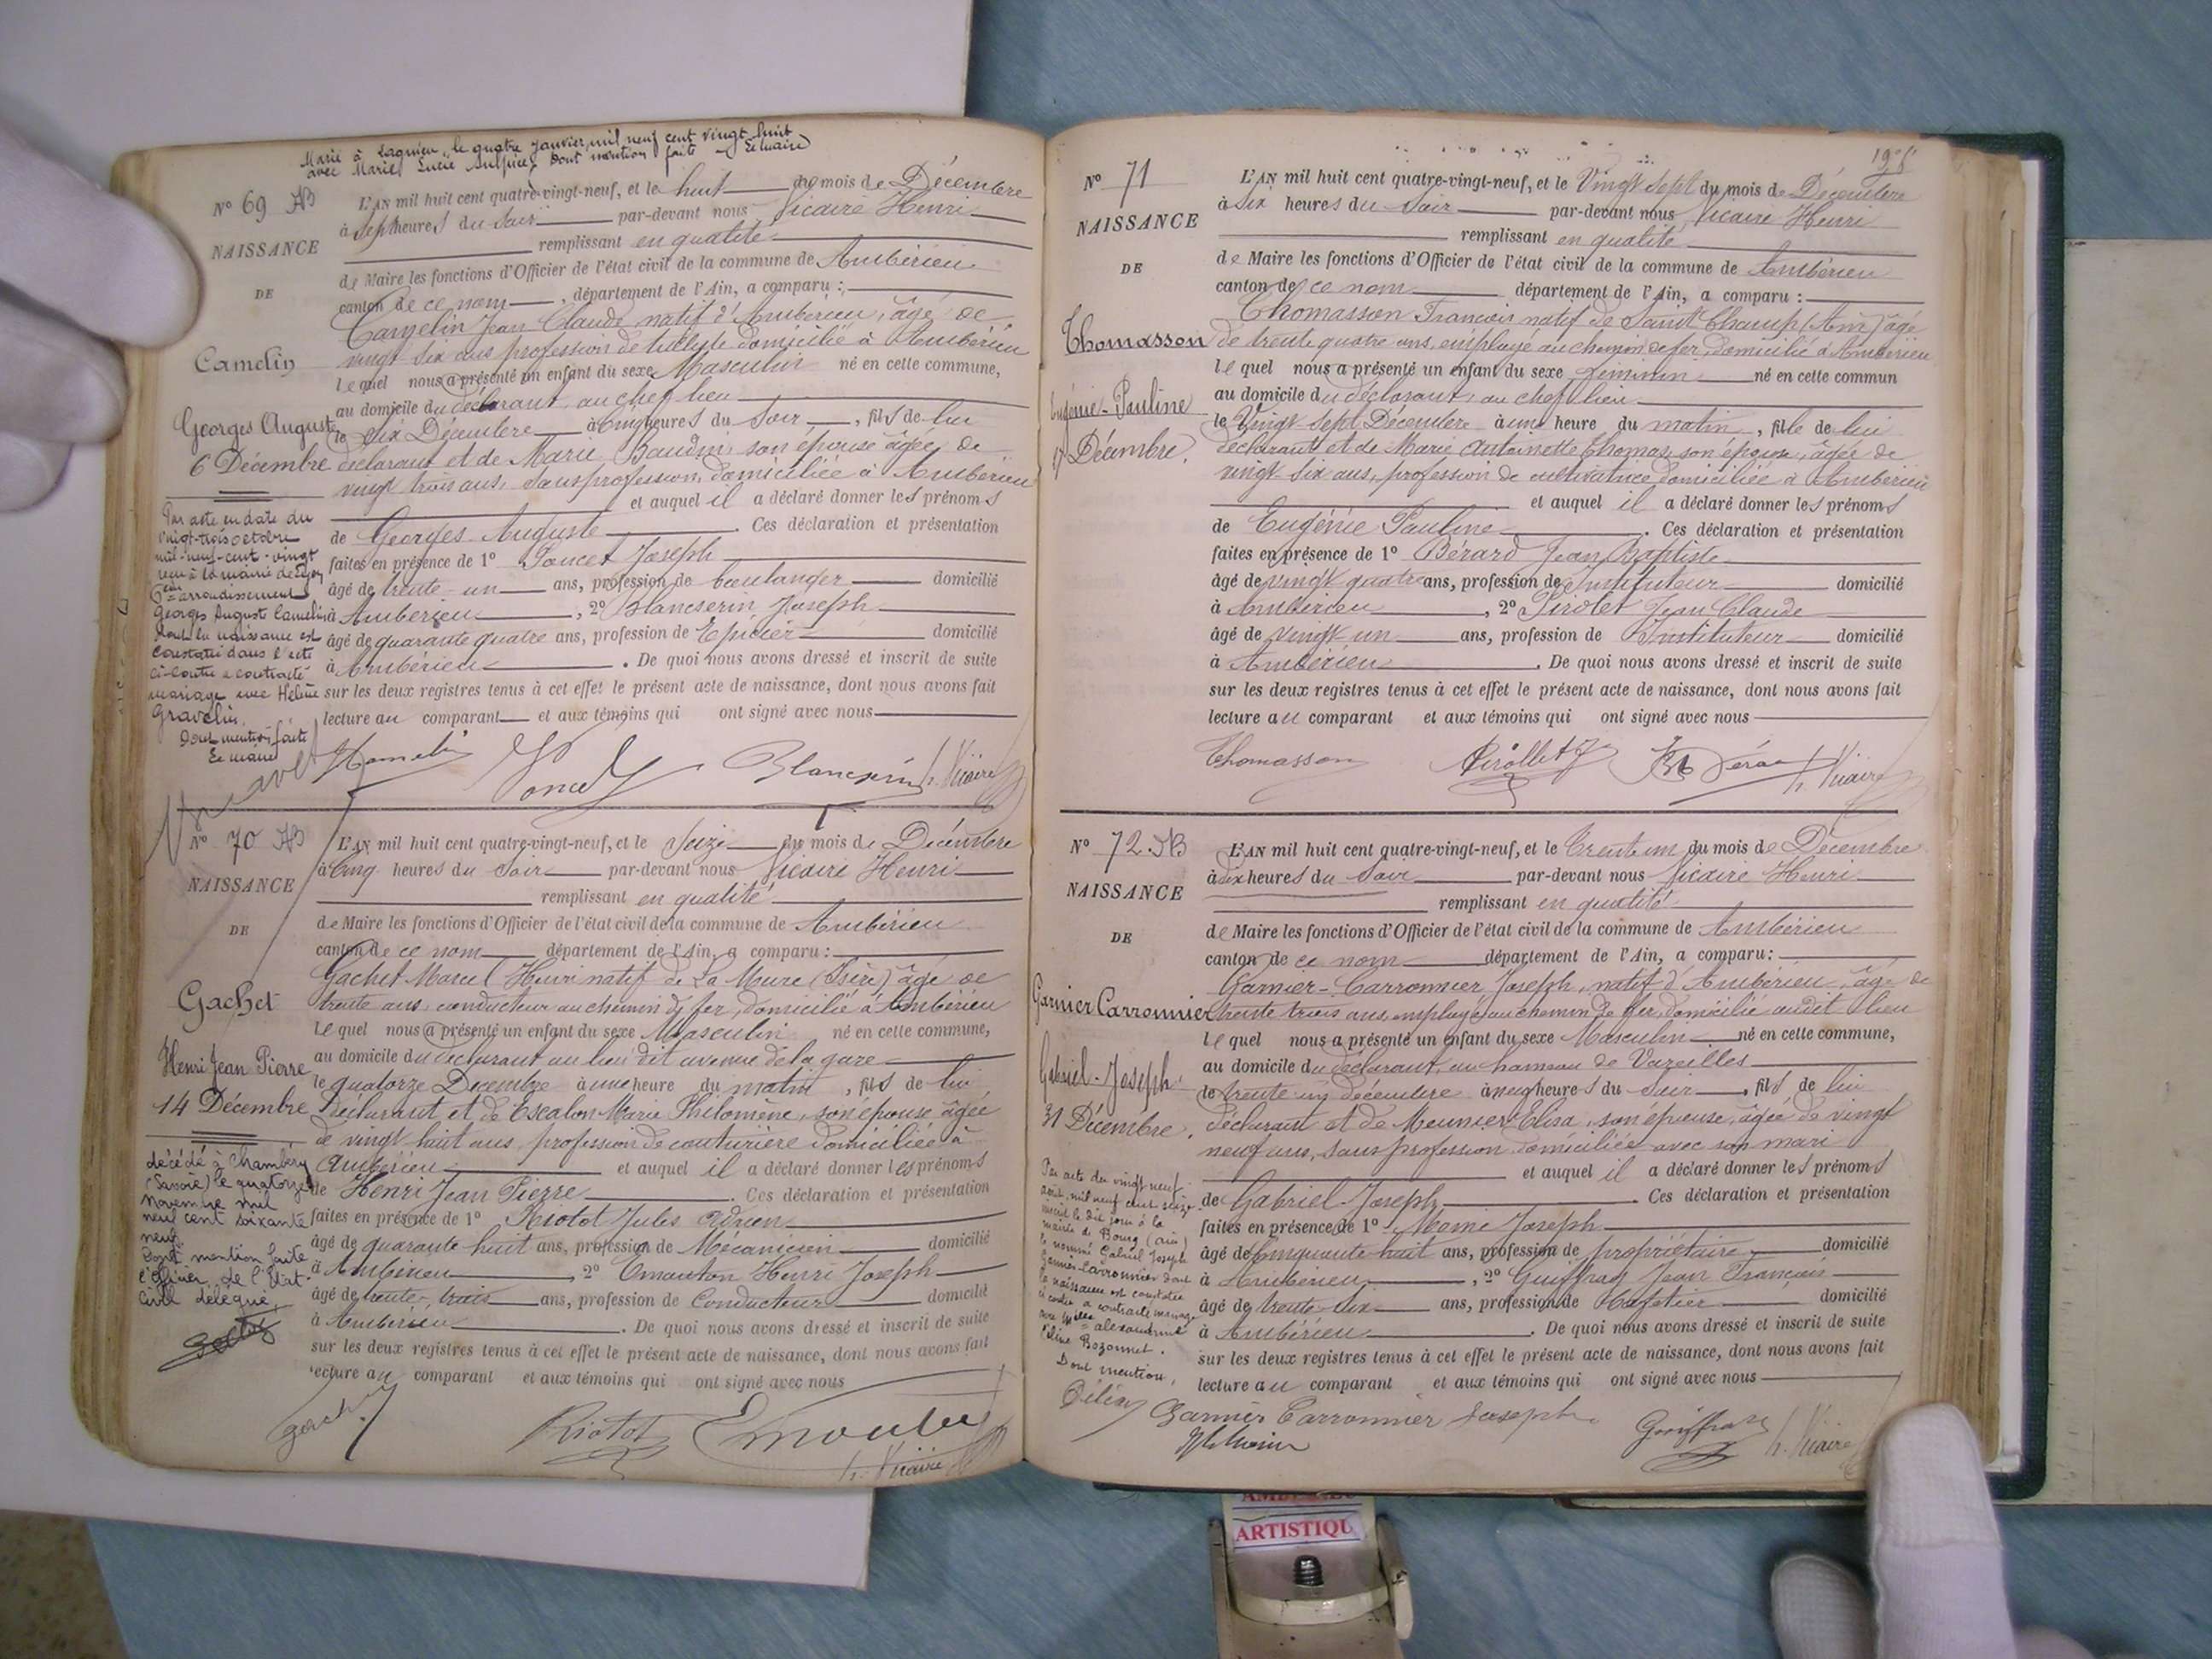 Marié à Lagnieu, le quatre janvier mil neuf cent vingt huit
avec Marie Lucie Dont mention faite Le Maire
N° 69 AB
NAISSANCE
DE
Camelin
Georges Auguste
6 Décembre
Par acte en date du
vingt-trois octobre
mil-neuf-cent-vingt
à la mairie de Lyon
6eme arrondissement
Georges Auguste Camelin
dont la naissance est
constatée dans l'acte
ci-contre a contracté
mariage avec Hélène
Gravelin.
Dont mention faite
Le maire
L'AN mil huit cent quatre-vingt-neuf, et le huit du mois de Décembre
à Sept heures du Soir par-devant nous Vicaire Henri
remplissant en qualité
de Maire les fonctions d'Officier de l'état civil de la commune de Ambérieu
canton de ce nom, département de l'Ain, a comparu :
Camelin Jean Claude natif d'Ambérieu, âgé de
vingt six ans profession de domicilié à Ambérieu
lequel nous a présenté un enfant du sexe Masculin né en cette commune,
au domicile du déclarant au chef lieu
le Six Décembre à cinq heures du Soir, fils de lui
déclarant et de Marie Baudin son épouse âgée de
vingt trois ans, sans profession domiciliée à Ambérieu
et auquel il a déclaré donner les prénoms
de Georges Auguste. Ces déclaration et présentation
faites en présence de 1° Poncet Joseph
âgé de trente-un ans, profession de boulanger domicilié
à Ambérieu, 2° Blancserin Joseph
âgé de quarante quatre ans, profession de Epicier domicilié
à Ambérieu. De quoi nous avons dressé et inscrit de suite
sur les deux registres tenus à cet effet le présent acte de naissance, dont nous avons fait
lecture au comparant et aux témoins qui ont signé avec nous
Camelin Poncet Blancserin h. Vicaire
N° 70 AB
NAISSANCE
DE
Gachet
Henri Jean Pierre
14 Décembre
décédé à Chambéry
(Savoie) le quatorze
novembre mil
neuf cent soixante
neuf.
Dont mention faite
l'Officier de l'Etat-
Civil délégué,
L'AN mil huit cent quatre-vingt-neuf, et le Seize du mois de Décembre
à Cinq heures du Soir par-devant nous Vicaire Henri
remplissant en qualité
de Maire les fonctions d'Officier de l'état civil de la commune de Ambérieu
canton de ce nom département de l'Ain, a comparu :
Gachet Marcel Henri natif de La Mure (Isère) âgé de
trente ans, conducteur au chemin de fer, domicilié à Ambérieu
lequel nous a présenté un enfant du sexe Masculin né en cette commune,
au domicile du déclarant au lieu dit avenue de la gare
le quatorze Décembre à une heure du matin, fils de lui
déclarant et de Escalon Marie Philomène, son épouse âgée
de vingt huit ans, profession de couturière domiciliée à
Ambérieu et auquel il a déclaré donner les prénoms
de Henri Jean Pierre. Ces déclaration et présentation
faites en présence de 1° Riotot Jules Adrien
âgé de quarante huit ans, profession de Mécanicien domicilié
à Ambérieu, 2° Emouton Henri Joseph
âgé de trente-trois ans, profession de Conducteur domicilié
à Ambérieu. De quoi nous avons dressé et inscrit de suite
sur les deux registres tenus à cet effet le présent acte de naissance, dont nous avons fait
lecture au comparant et aux témoins qui ont signé avec nous
Gachet Riotot h. Vicaire
N° 71
NAISSANCE
DE
Thomasson
Eugénie-Pauline
27 Décembre.
L'AN mil huit cent quatre-vingt-neuf, et le Vingt Sept du mois de Décembre
à Six heures du Soir par-devant nous Vicaire Henri
remplissant en qualité
de Maire les fonctions d'Officier de l'état civil de la commune de Ambérieu
canton de ce nom département de l'Ain, a comparu :
Thomasson François natif de Saint Champ (Ain) âgé
de trente quatre ans, employé au chemin de fer, domicilié à Ambérieu
lequel nous a présenté un enfant du sexe féminin né en cette commun
au domicile du déclarant, au chef lieu
le Vingt Sept Décembre à une heure du matin, fille de lui
déclarant et de Marie Antoinette Thomas son épouse, âgée de
vingt-six ans, profession de cultivatrice domiciliée à Ambérieu
et auquel il a déclaré donner les prénoms
de Eugénie Pauline. Ces déclaration et présentation
faites en présence de 1° Bérard Jean Baptiste
âgé de vingt quatre ans, profession de Instituteur domicilié
à Ambérieu, 2° Pirolet Jean Claude
âgé de vingt-un ans, profession de Instituteur domicilié
à Ambérieu. De quoi nous avons dressé et inscrit de suite
sur les deux registres tenus à cet effet le présent acte de naissance, dont nous avons fait
lecture au comparant et aux témoins qui ont signé avec nous
Thomasson Pirollet h. Vicaire
N° 72. AB
NAISSANCE
DE
Garnier Carronnier
Gabriel-Joseph
31 Décembre.
Par acte du vingt neuf
août mil neuf cent seize
inscrit le dit jour à la
mairie de Bourg (Ain)
le nommé Gabriel Joseph
Garnier-Carronnier dont
la naissance est constatée
ci contre a contracté mariage
avec Melle alexandrine
Bozonnet.
Dont mention,
L'AN mil huit cent quatre-vingt-neuf, et le Trente un du mois de Décembre
à dix heures du Soir par-devant nous Vicaire Henri
remplissant en qualité
de Maire les fonctions d'Officier de l'état civil de la commune de Ambérieu
canton de ce nom département de l'Ain, a comparu :
Garnier-Carronnier Joseph, natif d'Ambérieu, âgé de
trente trois ans, employé au chemin de fer, domicilié audit lieu
lequel nous a présenté un enfant du sexe Masculin né en cette commune,
au domicile du déclarant, au hameau de Vareilles
le trente un décembre à neuf heures du Soir, fils de lui
déclarant et de Meunier Elisa, son épouse, âgée de vingt
neuf ans, sans profession domiciliée avec son mari
et auquel il a déclaré donner les prénoms
de Gabriel-Joseph. Ces déclaration et présentation
faites en présence de 1° Joseph
âgé de cinquante huit ans, profession de propriétaire domicilié
à Ambérieu, 2° Guiffray Jean François
âgé de trente-six ans, profession de Cafetier domicilié
à Ambérieu. De quoi nous avons dressé et inscrit de suite
sur les deux registres tenus à cet effet le présent acte de naissance, dont nous avons fait
lecture au comparant et aux témoins qui ont signé avec nous
Garnier Carronnier Joseph Guiffray h. Vicaire
ARTISTIQU